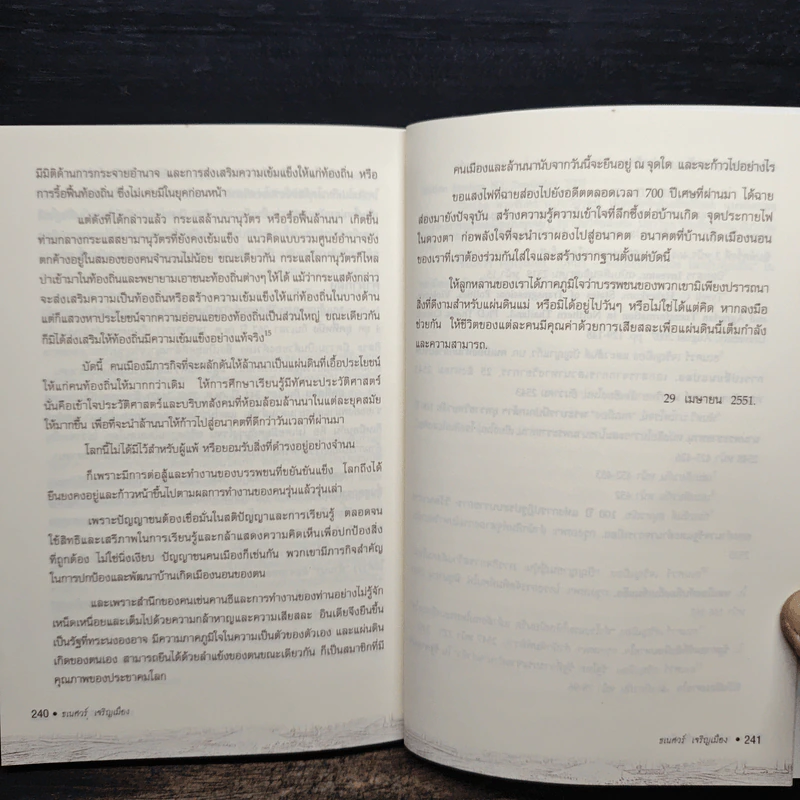 มีมิติด้านการกระจายอำนาจ และการส่งเสริมความเข้มแข็งให้แก่ท้องถิ่น หรือ
การรื้อฟื้นท้องถิ่น ซึ่งไม่เคยมีในยุคก่อนหน้า
แต่ดังที่ได้กล่าวแล้ว กระแสล้านนานุวัตร หรือรื้อฟื้นล้านนา เกิดขึ้น
ท่ามกลางกระแสสยามานุวัตรที่ยังคงเข้มแข็ง แนวคิดแบบรวมศูนย์อำนาจยัง
ตกค้างอยู่ในสมองของคนจำนวนไม่น้อย ขณะเดียวกัน กระแสโลกานุวัตรก็ไหล
บ่าเข้ามาในท้องถิ่นและพยายามเอาชนะท้องถิ่นต่างๆ ให้ได้ แม้ว่ากระแสดังกล่าว
จะส่งเสริมความเป็นท้องถิ่นหรือสร้างความเข้มแข็งให้แก่ท้องถิ่นในบางด้าน
แต่ก็แสวงหาประโยชน์จากความอ่อนแอของท้องถิ่นเป็นส่วนใหญ่ ขณะเดียวกัน
ก็มิได้ส่งเสริมให้ท้องถิ่นมีความเข้มแข็งอย่างแท้จริง¹⁵
บัดนี้ คนเมืองมีภารกิจที่จะผลักดันให้ล้านนาเป็นแผ่นดินที่เอื้อประโยชน์
ให้แก่คนท้องถิ่นให้มากกว่าเดิม ให้การศึกษาเรียนรู้มีทัศนะประวัติศาสตร์
นั่นคือเข้าใจประวัติศาสตร์และบริบทสังคมที่ห้อมล้อมล้านนาในแต่ละยุคสมัย
ให้มากขึ้น เพื่อที่จะนำล้านนาให้ก้าวไปสู่อนาคตที่ดีกว่าวันเวลาที่ผ่านมา
โลกนี้ไม่ได้มีไว้สำหรับผู้แพ้ หรือยอมรับสิ่งที่ดำรงอยู่อย่างจำนน
ก็เพราะมีการต่อสู้และทำงานของบรรพชนที่ขยันขันแข็ง โลกถึงได้
ยืนยงคงอยู่และก้าวหน้าขึ้นไปตามผลการทำงานของคนรุ่นแล้วรุ่นเล่า
เพราะปัญญาชนต้องเชื่อมั่นในสติปัญญาและการเรียนรู้ ตลอดจน
ใช้สิทธิและเสรีภาพในการเรียนรู้และกล้าแสดงความคิดเห็นเพื่อปกป้องสิ่ง
ที่ถูกต้อง ไม่ใช่นิ่งเงียบ ปัญญาชนคนเมืองก็เช่นกัน พวกเขามีภารกิจสำคัญ
ในการปกป้องและพัฒนาบ้านเกิดเมืองนอนของตน
และเพราะสำนึกของคนเช่นคานธีและการทำงานของท่านอย่างไม่รู้จัก
เหน็ดเหนื่อยและเต็มไปด้วยความกล้าหาญและความเสียสละ อินเดียจึงยืนขึ้น
เป็นรัฐที่ทระนงองอาจ มีความภาคภูมิใจในความเป็นตัวของตัวเอง และแผ่นดิน
เกิดของตนเอง สามารถยืนได้ด้วยลำแข้งของตนขณะเดียวกัน ก็เป็นสมาชิกที่มี
คุณภาพของประชาคมโลก
240 • ธเนศวร์ เจริญเมือง
คนเมืองและล้านนานับจากวันนี้จะยืนอยู่ ณ จุดใด และจะก้าวไปอย่างไร
ขอแสงไฟที่ฉายส่องไปยังอดีตตลอดเวลา 700 ปีเศษที่ผ่านมา ได้ฉาย
ส่องมายังปัจจุบัน สร้างความรู้ความเข้าใจที่ลึกซึ้งต่อบ้านเกิด จุดประกายไฟ
ในดวงตา ก่อพลังใจที่จะนำเราผองไปสู่อนาคต อนาคตที่บ้านเกิดเมืองนอน
ของเราที่เราต้องร่วมกันใส่ใจและสร้างรากฐานตั้งแต่บัดนี้
ให้ลูกหลานของเราได้ภาคภูมิใจว่าบรรพชนของพวกเขามิเพียงปรารถนา
สิ่งที่ดีงามสำหรับแผ่นดินแม่ หรือมิได้อยู่ไปวันๆ หรือไม่ใช่ได้แต่คิด หากลงมือ
ช่วยกัน ให้ชีวิตของแต่ละคนมีคุณค่าด้วยการเสียสละเพื่อแผ่นดินนี้เต็มกำลัง
และความสามารถ.
29 เมษายน 2551.
ธเนศวร์ เจริญเมือง • 241